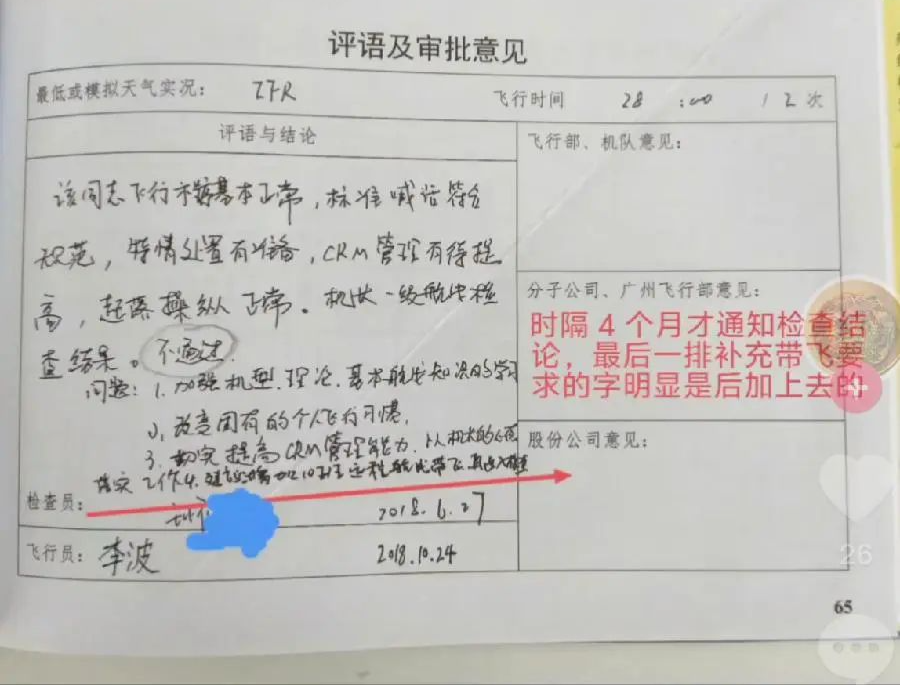 评语及审批意见
最低或模拟天气实况: IFR 飞行时间 28 :00 12次
评语与结论
该同志飞行 基本正常,标准喊话符合
规范,特情处置有准备,CRM管理有待提
高,起落操纵正常。机长一级航线检
查结果。不通过.
问题:1.加强机型.理论.基本航线知识的学习
2,改变固有的个人飞行习惯,
3.切实提高CRM管理能力.从机长的
落实工作4. 带飞
检查员: 2018.6.27
飞行员:李波 2018.10.24
飞行部、机队意见:
分子公司、广州飞行部意见:
时隔4个月才通知检查结
论,最后一排补充带飞要
求的字明显是后加上去的
股份公司意见:
26
65